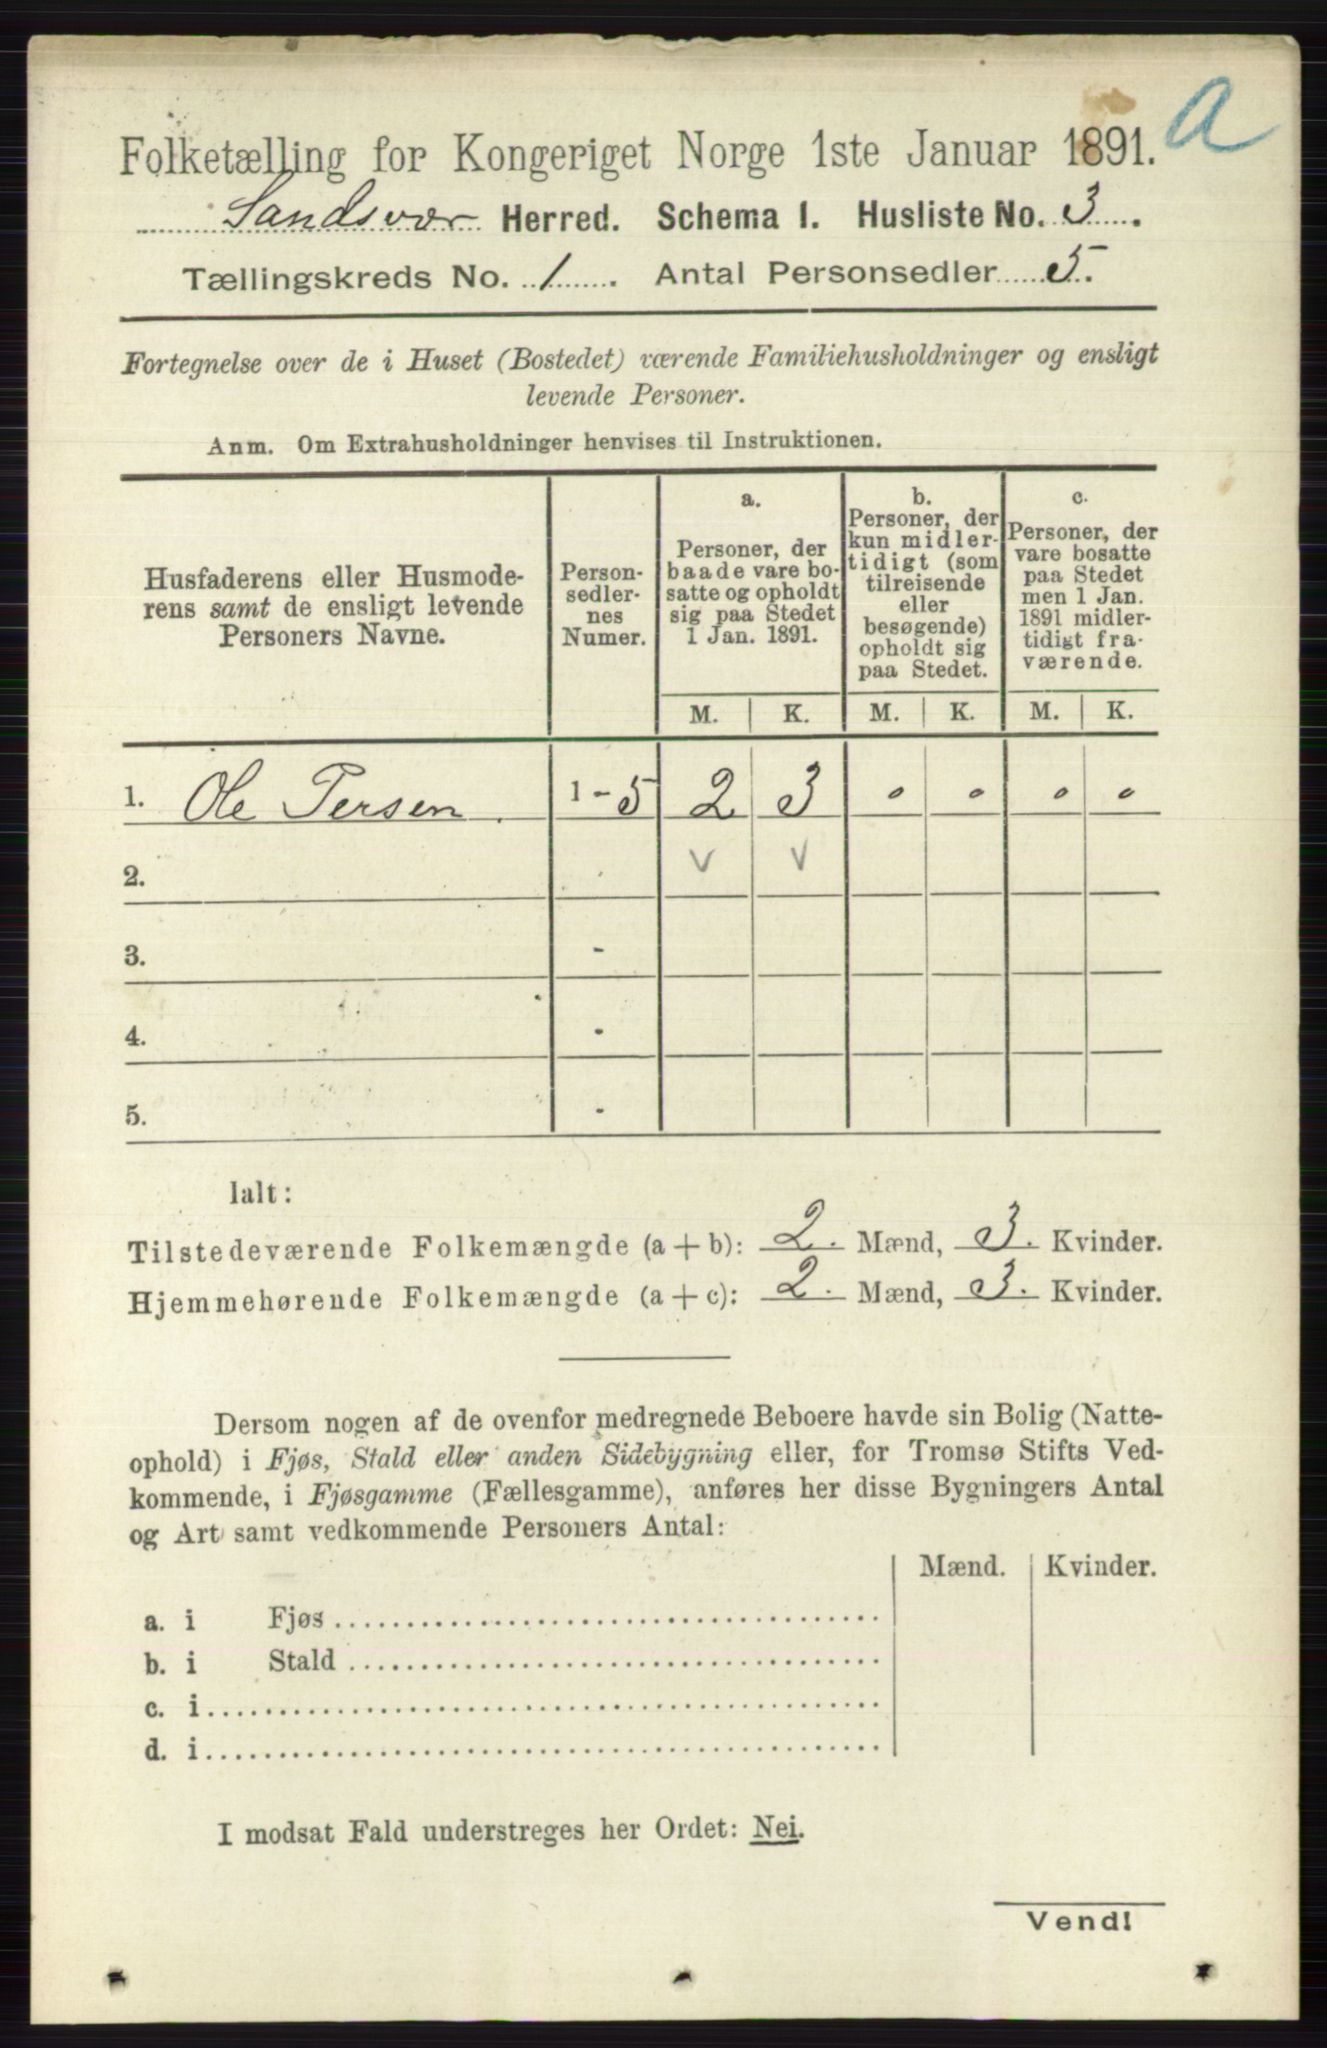 a
Folketælling for Kongeriget Norge 1ste Januar 1891.
Sandsvær Herred. Schema I. Husliste No. 3.
Tællingskreds No. 1. Antal Personsedler 5.
Fortegnelse over de i Huset (Bostedet) værende Familiehusholdninger og ensligt
levende Personer.
Anm. Om Extrahusholdninger henvises til Instruktionen.
Husfaderens eller Husmode-
rens samt de ensligt levende
Personers Navne.
Person-
sedler-
nes
Numer.
a.
Personer, der
baade vare bo-
satte og opholdt
sig paa Stedet
1 Jan. 1891.
b.
Personer, der
kun midler-
tidigt (som
tilreisende
eller
besøgende)
opholdt sig
paa Stedet.
c.
Personer, der
vare bosatte
paa Stedet
men 1 Jan.
1891 midler-
tidigt fra-
værende.
M. K. M. K. M. K.
1. Ole Persen. 1 - 5 2 3 0 0 0 0
2. v v
3. -
4. -
5. -
Ialt:
Tilstedeværende Folkemængde (a + b): 2. Mænd, 3. Kvinder.
Hjemmehørende Folkemængde (a + c): 2. Mænd, 3. Kvinder.
Dersom nogen af de ovenfor medregnede Beboere havde sin Bolig (Natte-
ophold) i Fjøs, Stald eller anden Sidebygning eller, for Tromsø Stifts Ved-
kommende, i Fjøsgamme (Fællesgamme), anføres her disse Bygningers Antal
og Art samt vedkommende Personers Antal:
Mænd. Kvinder.
a. i Fjøs
b. i Stald
c. i
d. i
I modsat Fald understreges her Ordet: Nei.
Vend!